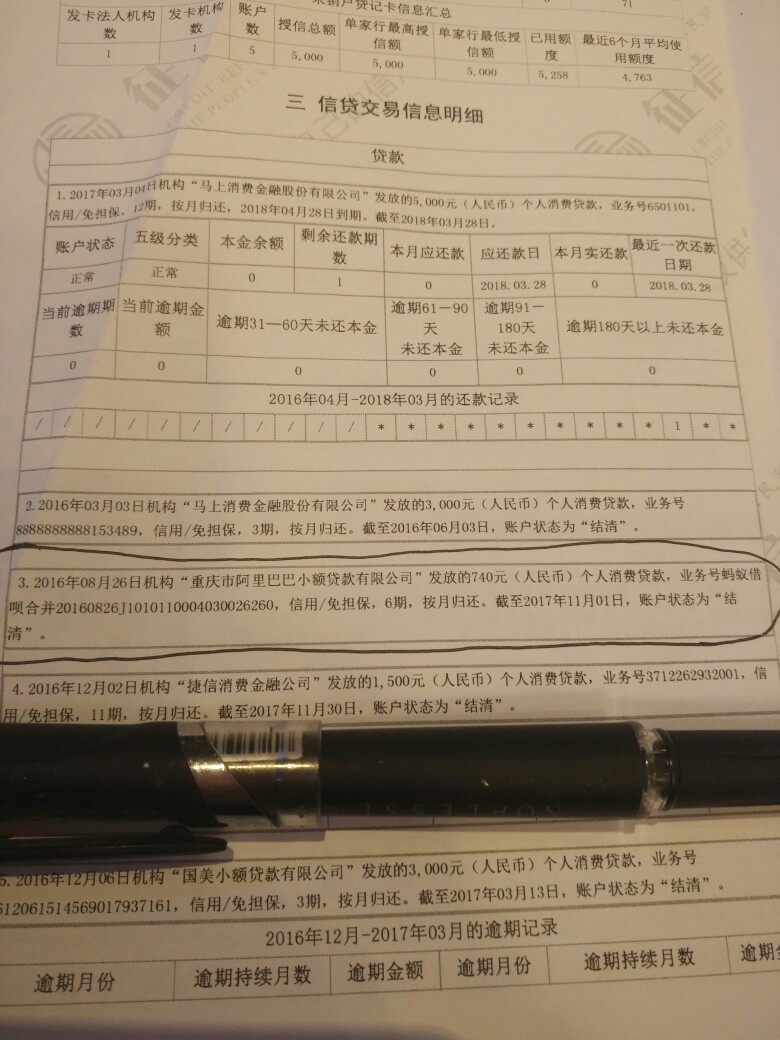 未销户贷记卡信息汇总
71
发卡法人机构数 发卡机构数 账户数 授信总额 单家行最高授信额 单家行最低授信额 已用额度 最近6个月平均使用额度
1 1 5 5,000 5,000 5,000 5,258 4,763
三 信贷交易信息明细
贷款
1.2017年03月04日机构“马上消费金融股份有限公司”发放的5,000元（人民币）个人消费贷款，业务号6501101，
信用/免担保，12期，按月归还，2018年04月28日到期。截至2018年03月28日，
账户状态 五级分类 本金余额 剩余还款期数 本月应还款 应还款日 本月实还款 最近一次还款日期
正常 正常 0 1 0 2018.03.28 0 2018.03.28
当前逾期期数 当前逾期金额 逾期31—60天未还本金 逾期61－90天未还本金 逾期91－180天未还本金 逾期180天以上未还本金
0 0 0 0 0 0
2016年04月-2018年03月的还款记录
/ / / / / / / / / / / * * * * * * * * * * 1 * *
2.2016年03月03日机构“马上消费金融股份有限公司”发放的3,000元（人民币）个人消费贷款，业务号
8888888888153489，信用/免担保，3期，按月归还。截至2016年06月03日，账户状态为“结清”。
3.2016年08月26日机构“重庆市阿里巴巴小额贷款有限公司”发放的740元（人民币）个人消费贷款，业务号蚂蚁借
呗合并20160826J1010110004030026260，信用/免担保，6期，按月归还。截至2017年11月01日，账户状态为“结
清”。
4.2016年12月02日机构“捷信消费金融公司”发放的1,500元（人民币）个人消费贷款，业务号3712262932001，信
用/免担保，11期，按月归还。截至2017年11月30日，账户状态为“结清”。
5.2016年12月06日机构“国美小额贷款有限公司”发放的3,000元（人民币）个人消费贷款，业务号
6120615145690179​37161，信用/免担保，3期，按月归还。截至2017年03月13日，账户状态为“结清”。
2016年12月-2017年03月的逾期记录
逾期月份 逾期持续月数 逾期金额 逾期月份 逾期持续月数